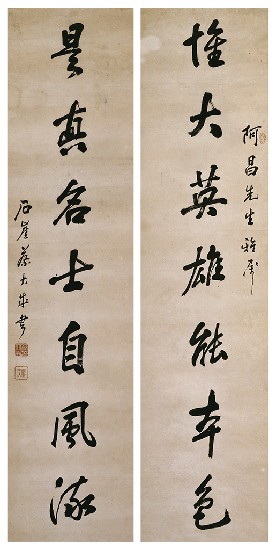 惟大英雄能本色
阿昌先生雅屬
是真名士自風流
石崖蔡大成書